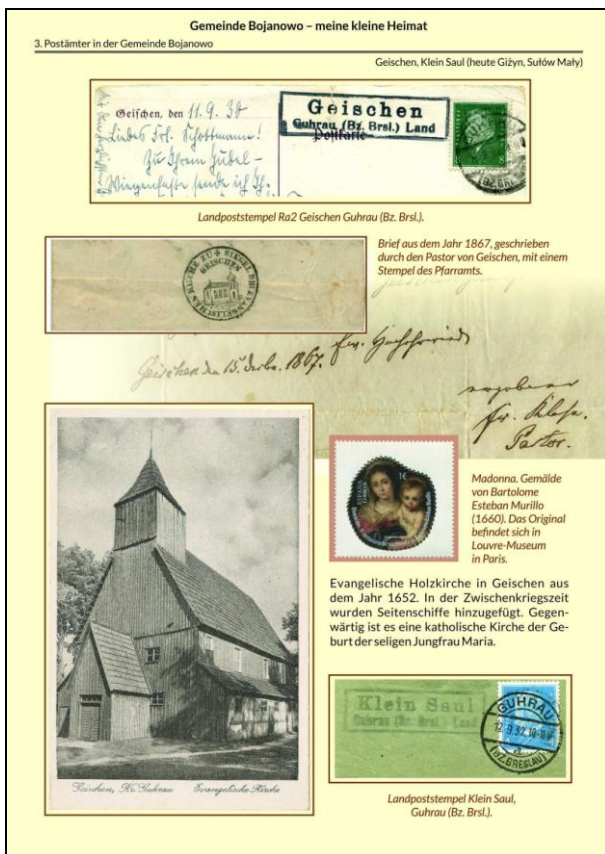 Gemeinde Bojanowo – meine kleine Heimat
3. Postämter in der Gemeinde Bojanowo
Geischen, Klein Saul (heute Giżyn, Sułów Mały)
Geischen, den 11.9.30
Geischen
Guhrau (Bz. Brsl.) Land
Postkarte
Liebes Frl. Schottmann!
Zu Ihrem
Wiegenfeste sende ich
Landpoststempel Ra2 Geischen Guhrau (Bz. Brsl.).
SIEGEL DER EVANGELISCHEN KIRCHE ZU
GEISCHEN
Brief aus dem Jahr 1867, geschrieben
durch den Pastor von Geischen, mit einem
Stempel des Pfarramts.
Geischen den 15. 1867.
Pastor.
Madonna. Gemälde
von Bartolome
Esteban Murillo
(1660). Das Original
befindet sich in
Louvre-Museum
in Paris.
Evangelische Holzkirche in Geischen aus
dem Jahr 1652. In der Zwischenkriegszeit
wurden Seitenschiffe hinzugefügt. Gegen-
wärtig ist es eine katholische Kirche der Ge-
burt der seligen Jungfrau Maria.
Geischen, Kr. Guhrau Evangelische Kirche
Klein Saul
Guhrau (Bz. Brsl.) Land
GUHRAU
12.9.32.
(BZ. BRESLAU)
Landpoststempel Klein Saul,
Guhrau (Bz. Brsl.).